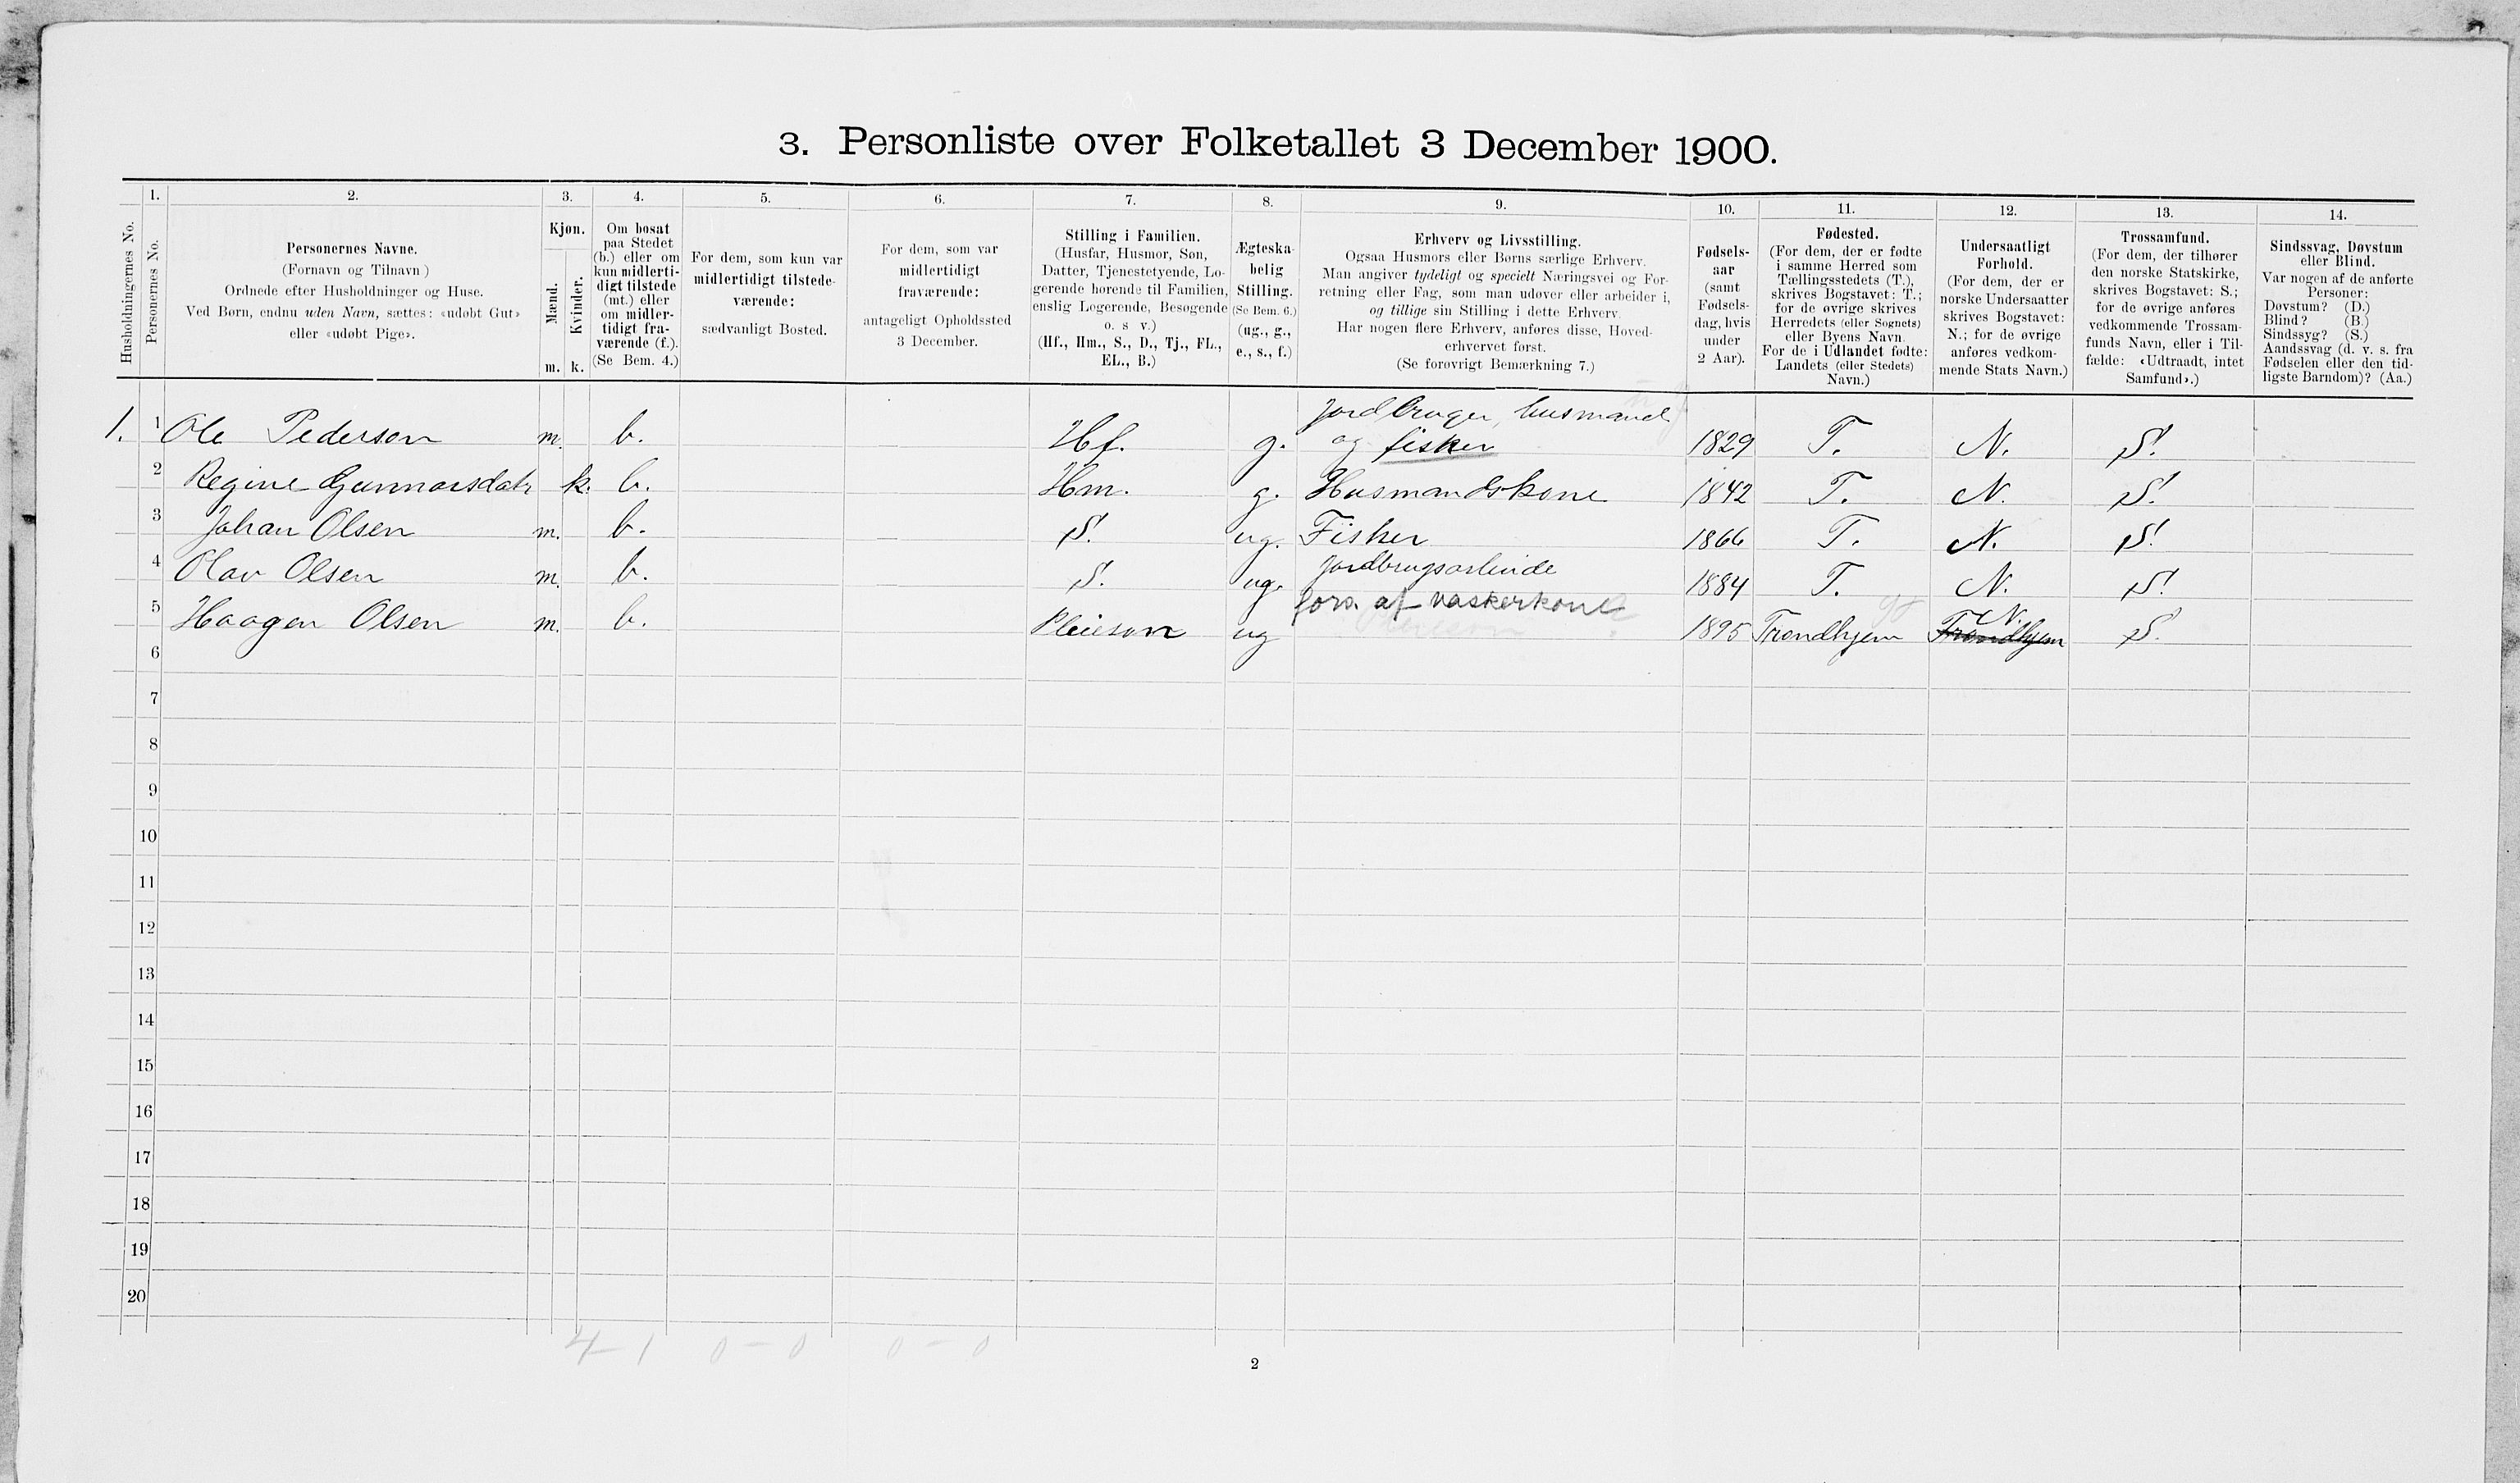 3. Personliste over Folketallet 3 December 1900.
Husholdningernes No.
1.
Personernes No.
2.
Personernes Navne.
(Fornavn og Tilnavn)
Ordnede efter Husholdninger og Huse.
Ved Børn, endnu uden Navn, sættes: «udøbt Gut»
eller «udøbt Pige».
3.
Kjøn.
Mænd.
Kvinder.
m. k.
4.
Om bosat
paa Stedet
(b.) eller om
kun midlerti-
digt tilstede
(mt.) eller
om midler-
tidigt fra-
værende (f.).
(Se Bem. 4.)
5.
For dem, som kun var
midlertidigt tilstede-
værende:
sædvanligt Bosted.
6.
For dem, som var
midlertidigt
fraværende:
antageligt Opholdssted
3 December.
7.
Stilling i Familien.
(Husfar, Husmor, Søn,
Datter, Tjenestetyende, Lo-
gerende hørende til Familien,
enslig Logerende, Besøgende
o. s v.)
(Hf., Hm., S., D., Tj., FL.,
EL., B.)
8.
Ægteska-
belig
Stilling.
(Se Bem. 6.)
(ug., g.,
e., s., f.)
9.
Erhverv og Livsstilling.
Ogsaa Husmors eller Børns særlige Erhverv.
Man angiver tydeligt og specielt Næringsvei og For-
retning eller Fag, som man udøver eller arbeider i,
og tillige sin Stilling i dette Erhverv.
Har nogen flere Erhverv, anføres disse, Hoved-
erhvervet først.
(Se forøvrigt Bemærkning 7.)
10.
Fødsels-
aar
(samt
Fødsels-
dag, hvis
under
2 Aar).
11.
Fødested.
(For dem, der er fødte
i samme Herred som
Tællingsstedets (T.),
skrives Bogstavet: T.;
for de øvrige skrives
Herredets (eller Sognets)
eller Byens Navn.
For de i Udlandet fødte:
Landets (eller Stedets)
Navn.)
12.
Undersaatligt
Forhold.
(For dem, der er
norske Undersaatter
skrives Bogstavet:
N.; for de øvrige
anføres vedkom-
mende Stats Navn.)
13.
Trossamfund.
(For dem, der tilhører
den norske Statskirke,
skrives Bogstavet: S.;
for de øvrige anføres
vedkommende Trossam-
funds Navn, eller i Til-
fælde: «Udtraadt, intet
Samfund».)
14.
Sindssvag, Døvstum
eller Blind.
Var nogen af de anførte
Personer:
Døvstum? (D.)
Blind? (B.)
Sindssyg? (S.)
Aandssvag (d. v. s. fra
Fødselen eller den tid-
ligste Barndom)? (Aa.)
1. 1 Ole Pederson m. b. Hf. g. Jordbruger, husmand og fisker 1829 T. N. S.
2 Regine Gunnarsdatr k. b. Hm. g. Husmandskone 1842 T. N. S.
3 Johan Olsen m. b. S. ug. Fisker 1866 T. N. S.
4 Olav Olsen m. b. S. ug. Jordbrugsarbeide 1884 T. N. S.
5 Haagen Olsen m. b. Pleieson ug fors. af vaskerkone 1895 Trondhjem Trondhjem N. S.
6
7
8
9
10
11
12
13
14
15
16
17
18
19
20
4 - 1 0 - 0 0 - 0
2